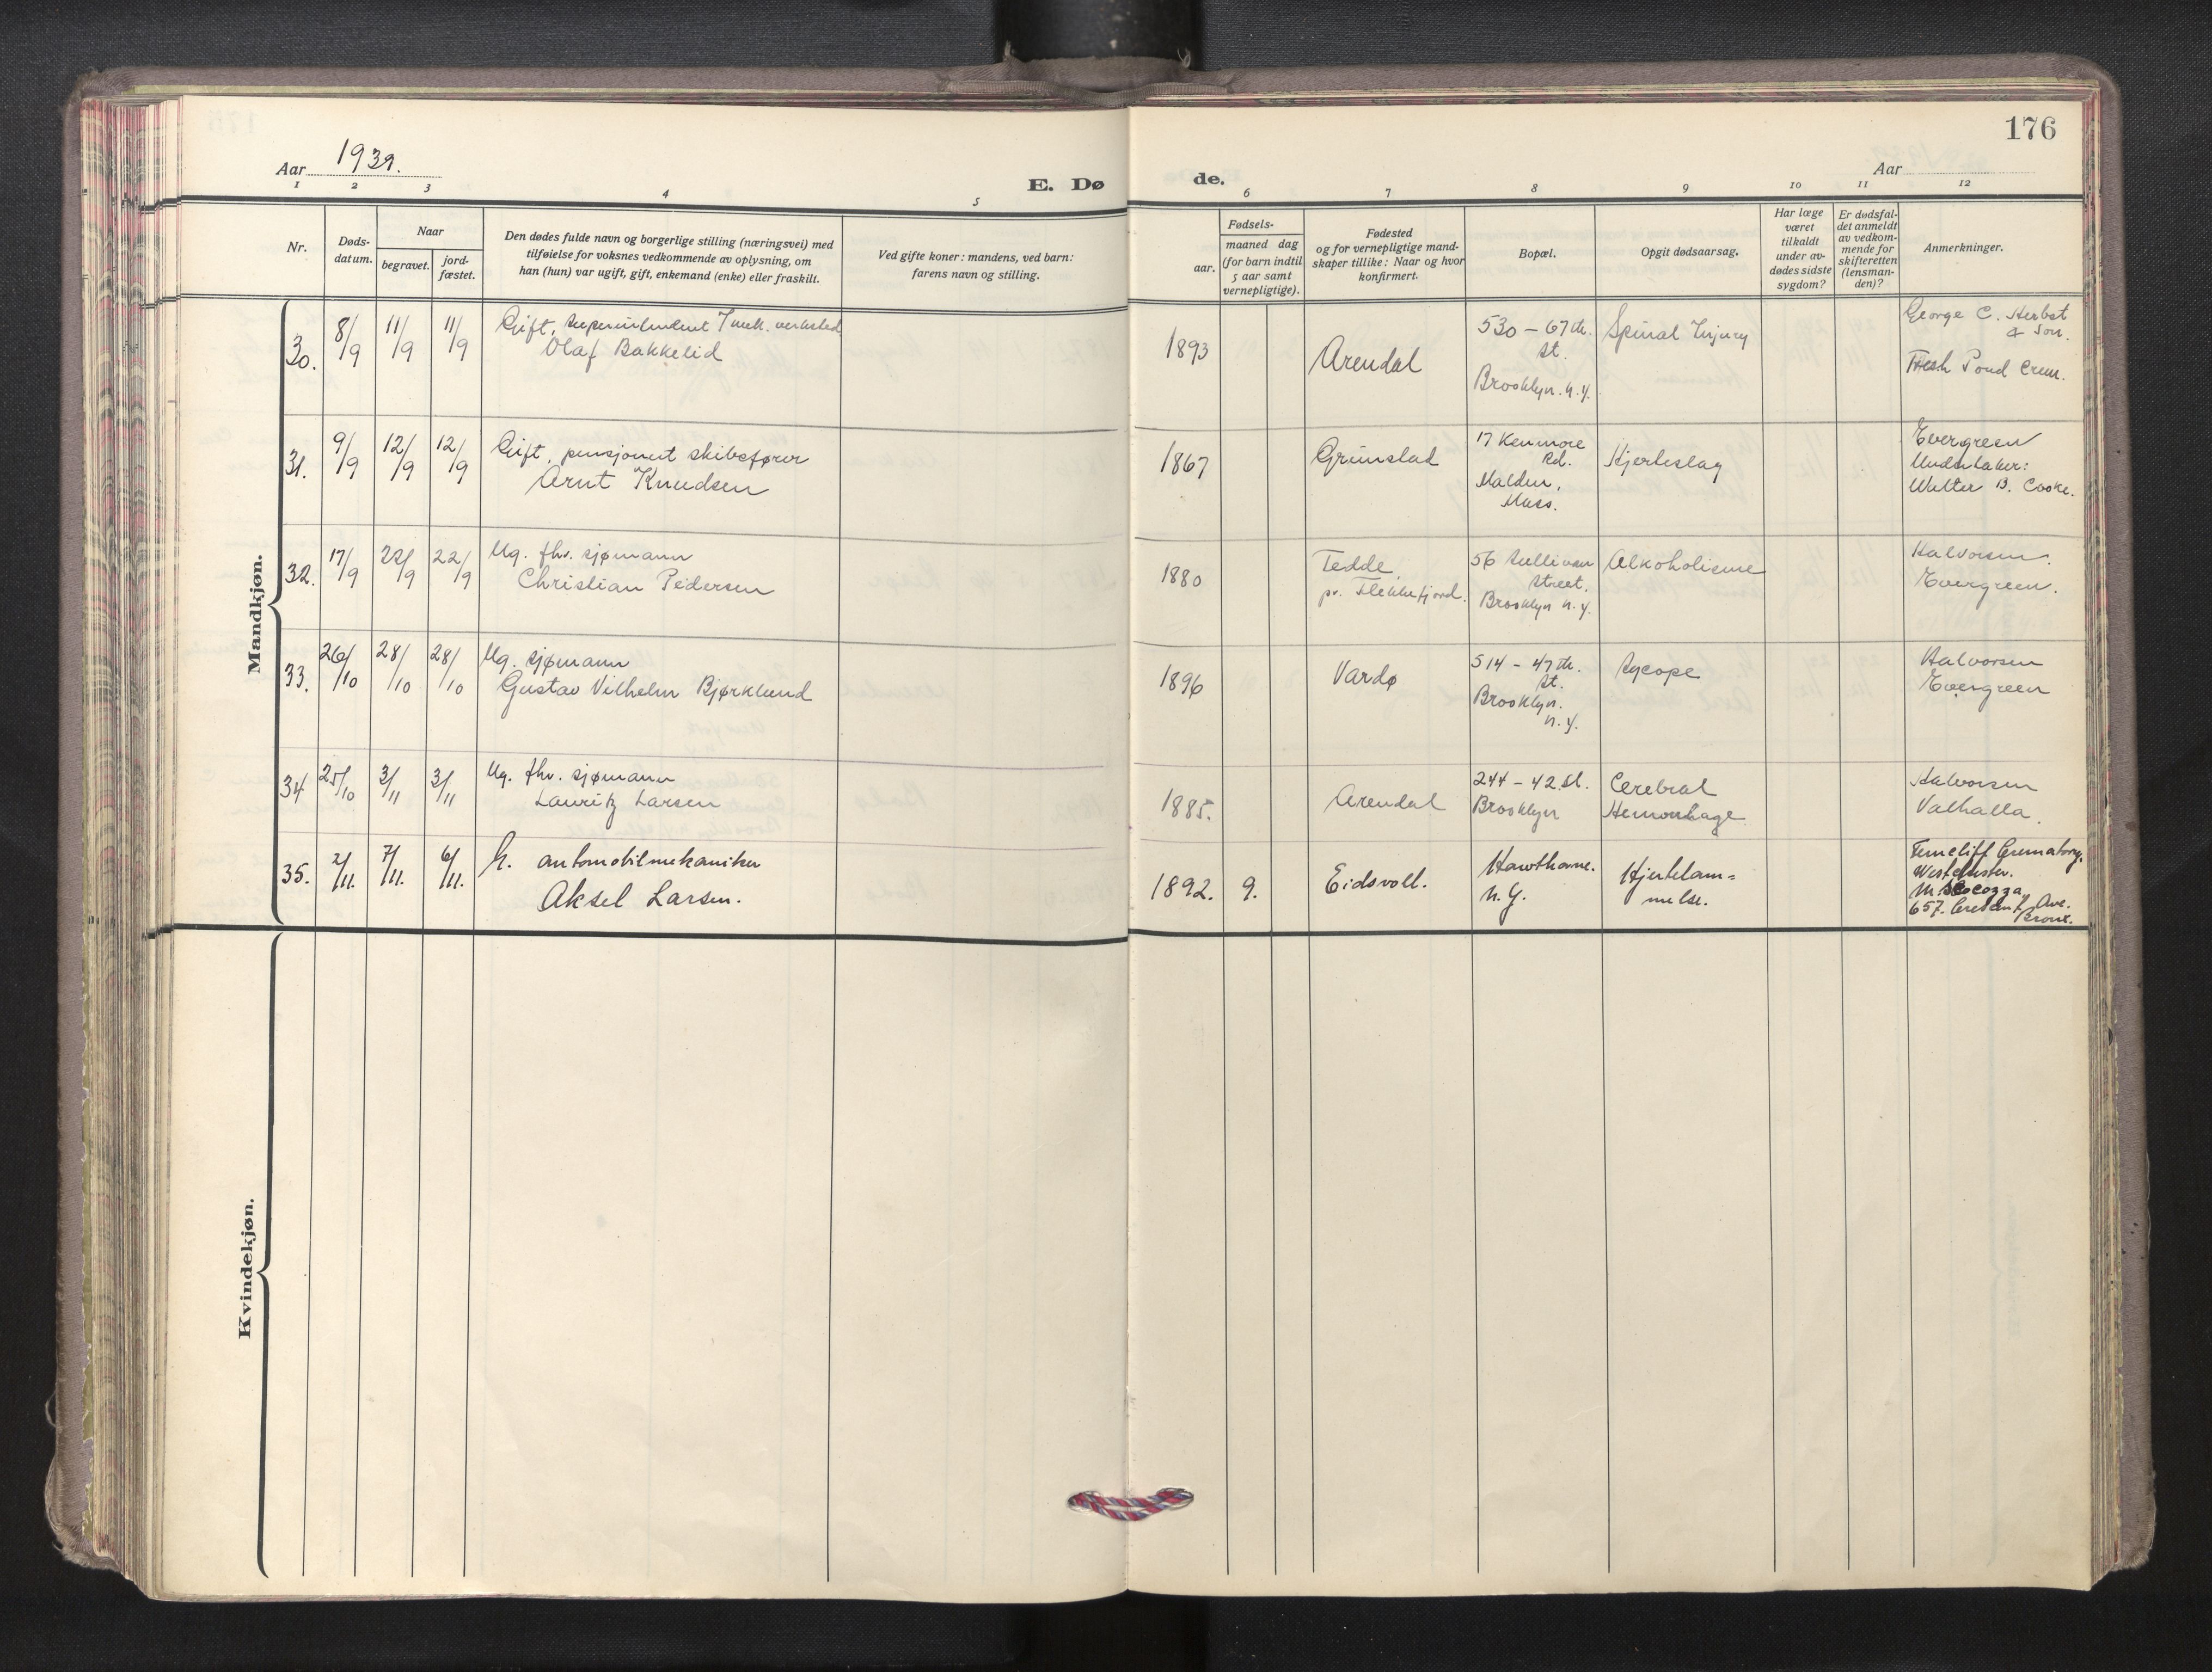 176
Aar 1939.
Aar
E. Dø
de.
1 2 3 4 5 6 7 8 9 10 11 12
Nr.
Døds-
datum.
Naar
begravet.
jord-
fæstet.
Den dødes fulde navn og borgerlige stilling (næringsvei) med
tilføielse for voksnes vedkommende av oplysning, om
han (hun) var ugift, gift, enkemand (enke) eller fraskilt.
Ved gifte koner: mandens, ved barn:
farens navn og stilling.
Fødsels-
aar.
maaned dag
(for barn indtil
5 aar samt
vernepligtige).
Fødested
og for vernepligtige mand-
skaper tillike: Naar og hvor
konfirmert.
Bopæl.
Opgit dødsaarsag.
Har læge
været
tilkaldt
under av-
dødes sidste
sygdom?
Er dødsfal-
det anmeldt
av vedkom-
mende for
skifteretten
(lensman-
den)?
Anmerkninger.
Mandkjøn.
30.
8/9
11/9
11/9
Gift, superintendent mek. verksted
Olaf Bakkelid
1893
Arendal
530 – 67 th.
St.
Brooklyn. N.Y.
Spinal Injury
George C. Herbst
& Son.
Fresh Pond Crem.
31.
9/9
12/9
12/9
Gift, pensjonert skibsfører
Arnt Knudsen
1867
Grimstad
17 Kenmore
Rd.
Malden,
Mass.
Hjerteslag
Evergreen
Undertaker:
Walter B. Cooke.
32.
17/9
22/9
22/9
Ug. fhv. sjømann
Christian Pedersen
1880
Tedde
pr. Flekkefjord.
56 Sullivan
Street.
Brooklyn N.Y.
Alkoholisme
Halvorsen.
Evergreen.
33.
26/10
28/10
28/10
Ug. sjømann
Gustav Vilhelm Bjørklund
1896
Vardø
514 – 47 th.
St.
Brooklyn.
N.Y.
Sycope
Halvorsen
Evergreen
34
25/10
3/11
3/11
Ug. fhv. sjømann
Lauritz Larsen
1885.
Arendal
244 – 42 St.
Brooklyn
Cerebral
Hemorrhage
Halvorsen
Valhalla.
35.
2/11.
7/11.
6/11.
G. automobilmekaniker
Aksel Larsen.
1892.
9.
Eidsvoll.
Hawthorne.
N.Y.
Hjertelam=
melse.
Ferncliff Crematory.
Westchester.
M. Scocozza
657. Crescent Ave.
Bronx.
Kvindekjøn.